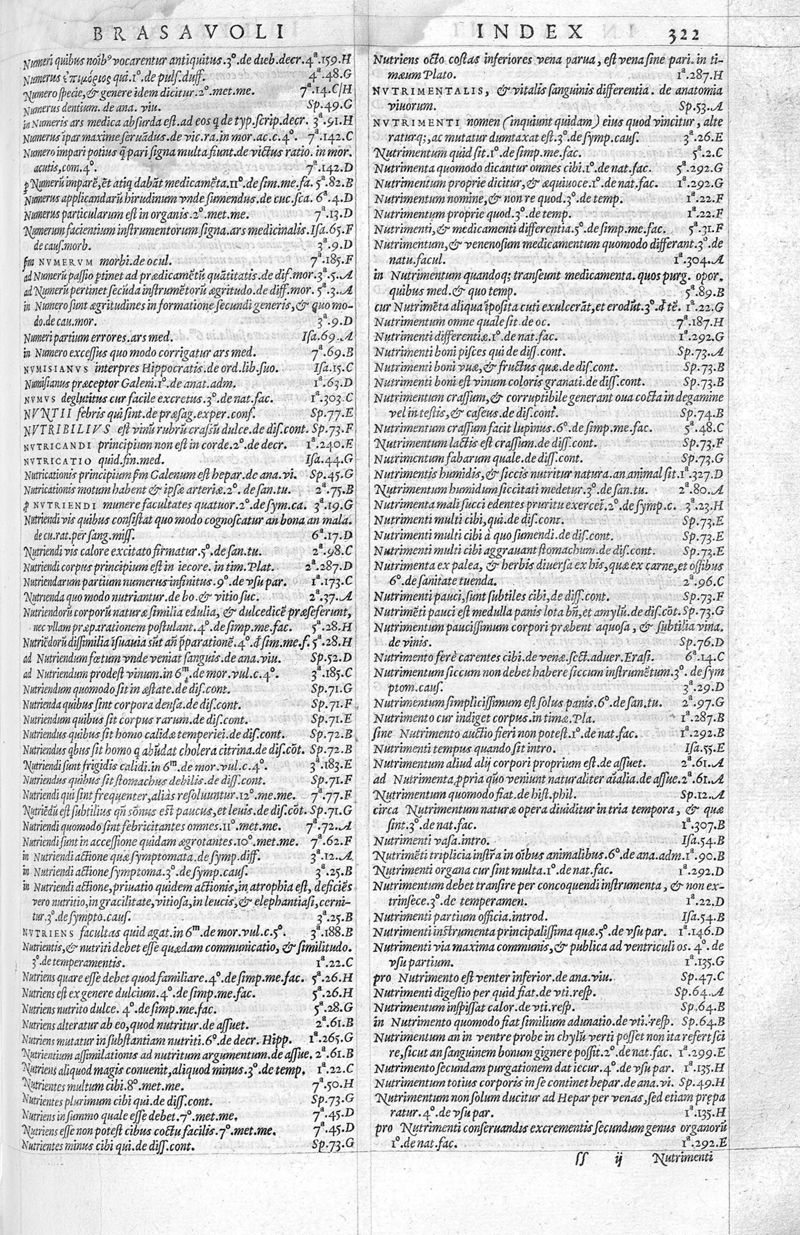 BRASAVOLI
Numeri quibus noĩb⁹ vocarentur antiquitus.3⁰.de dieb.decr. 4ª.159.H
Numerus ἐπιμόριος qui.1⁰.de pulſ.duff. 4ª.48.G
Numero ſpecie,& genere idem dicitur.2⁰.met.me. 7ª.14.C/H
Numerus dentium. de ana. viu. Sp.49.G
in Numeris ars medica abſurda eſt.ad eos q de typ.ſcrip.decr. 3ª.91.H
Numerus ĩpar maxime ſeruãdus.de vic.ra.in mor.ac.c.4⁰. 7ª.142.C
Numero impari potius q̃ pari ſigna multa fiunt.de victus ratio. in mor.
acutis,com.4⁰. 7ª.142.D
p Numerũ imparẽ,ẽt atiq dabãt medicamẽta.11⁰.de ſim.me.fa. 5ª.82.B
Numerus applicandarũ hirudinum vnde ſumendus.de cuc.ſca. 6ª.4.D
Numerus particularum eſt in organis.2⁰.met.me. 7ª.13.D
Numerum facientium inſtrumentorum ſigna.ars medicinalis. Iſa.65.F
de cauſ.morb. 3ª.9.D
ſm NVMERVM morbi.de ocul. 7ª.185.F
ad Numerũ paſſio ptinet ad prædicamẽtũ quãtitatis.de dif.mor. 3ª.5.A
ad Numerũ pertinet ſecũda inſtrumẽtorũ ægritudo.de diff.mor. 5ª.3.A
in Numero ſunt ægritudines in formatione ſecundi generis,& quo mo-
do.de cau.mor. 3ª.9.D
Numeri partium errores.ars med. Iſa.69.A
in Numero exceſſus quo modo corrigatur ars med. 7ª.69.B
NVMISIANVS interpres Hippocratis.de ord.lib.ſuo. Iſa.15.C
Numiſianus præceptor Galeni.1⁰.de anat.adm. 1ª.63.D
NVMVS deglutitus cur facile excretus.3⁰.de nat.fac. 1ª.303.C
NVNTII febris qui ſint.de præſag.exper.conf. Sp.77.E
NVTRIBILIVS eſt vinũ rubrũ craſſũ dulce.de diſ.cont. Sp.73.F
NVTRICANDI principium non eſt in corde.2⁰.de decr. 1ª.240.E
NVTRICATIO quid.fin.med. Iſa.44.G
Nutricationis principium ꝑm Galenum eſt hepar.de ana.vi. Sp.45.G
Nutricationis motum habent & ipſæ arteriæ.2⁰.de ſan.tu. 2ª.75.B
p NVTRIENDI munere facultates quatuor.2⁰.de ſym.ca. 3ª.19.G
Nutriendi vis quibus conſiſtat quo modo cognoſcatur an bona an mala.
de cu.rat.per ſang.miſſ. 6ª.17.D
Nutriendi vis calore excitato firmatur.5⁰.de ſan.tu. 2ª.98.C
Nutriendi corpus principium eſt in iecore.in tim.Plat. 2ª.287.D
Nutriendarum partium numerus infinitus.9⁰.de vſu par. 1ª.173.C
Nutrienda quo modo nutriantur.de bo.& vitio ſuc. 2ª.37.A
Nutriendorũ corporũ naturæ ſimilia edulia, & dulcedicẽ præſeferunt,
nec vllam præparationem poſtulant.4⁰.de ſimp.me.fac. 5ª.28.H
Nutriẽdorũ diſſimilia ĩſuauia ſũt añ p̃parationẽ.4⁰.d ſim.me.f. 5ª.28.H
ad Nutriendum fœtum vnde veniat ſanguis.de ana.viu. Sp.52.D
ad Nutriendum prodeſt vinum.in 6ᵐ.de mor.vul.c.4⁰. 3ª.185.C
Nutriendum quomodo ſit in æſtate.de diſ.cont. Sp.71.G
Nutrienda quibus ſint corpora denſa.de diſ.cont. Sp.71.F
Nutriendum quibus ſit corpus rarum.de diſ.cont. Sp.71.E
Nutriendus quibus ſit homo calidæ temperiei.de diſ.cont. Sp.72.B
Nutriendus qbus ſit homo q abũdat cholera citrina.de diſ.cõt. Sp.72.B
Nutriendi ſunt frigidis calidi.in 6ᵐ.de mor.vul.c.4⁰. 3ª.183.E
Nutriendus quibus ſit ſtomachus debilis.de diſſ.cont. Sp.71.F
Nutriendi qui ſint frequenter,aliàs reſoluuntur.12⁰.me.me. 7ª.77.F
Nutriẽdũ eſt ſubtilius qñ ſõnus eſt paucus,et leuis.de diſ.cõt. Sp.71.G
Nutriendi quomodo ſint febricitantes omnes.11⁰.met.me. 7ª.72.A
Nutriendi ſunt in acceſſione quidam ægrotantes.10⁰.met.me. 7ª.62.F
in Nutriendi actione quæ ſymptomata.de ſymp.diff. 3ª.12.A
in Nutriendi actione ſymptoma.3⁰.de ſymp.cauſ. 3ª.25.B
in Nutriendi actione,priuatio quidem actionis,in atrophia eſt, deficiẽs
vero nutritio,in gracilitate,vitioſa,in leucis,& elephantiaſi,cerni-
tur.3⁰.de ſympto.cauſ. 3ª.25.B
NVTRIENS facultas quid agat.in 6ᵐ.de mor.vul.c.5⁰. 3ª.188.B
Nutrientis,& nutriti debet eſſe quædam communicatio, & ſimilitudo.
3⁰.de temperamentis. 1ª.22.C
Nutriens quare eſſe debet quod familiare.4⁰.de ſimp.me.fac. 5ª.26.H
Nutriens eſt ex genere dulcium.4⁰.de ſimp.me.fac. 5ª.26.H
Nutriens nutrito dulce. 4⁰.de ſimp.me.fac. 5ª.28.G
Nutriens alteratur ab eo,quod nutritur.de aſſuet. 2ª.61.B
Nutriens mutatur in ſubſtantiam nutriti.6⁰.de decr. Hipp. 1ª.265.G
Nutrientium aſſimilationis ad nutritum argumentum.de aſſue. 2ª.61.B
Nutriens aliquod magis conuenit,aliquod minus.3⁰.de temp. 1ª.22.C
Nutrientes multum cibi.8⁰.met.me. 7ª.50.H
Nutrientes plurimum cibi qui.de diſſ.cont. Sp.73.G
Nutriens in ſummo quale eſſe debet.7⁰.met.me. 7ª.45.D
Nutriens eſſe non poteſt cibus coctu facilis.7⁰.met.me. 7ª.45.D
Nutrientes minus cibi qui.de diſſ.cont. Sp.73.G
INDEX 322
Nutriens octo coſtas inferiores vena parua, eſt vena ſine pari. in ti-
mæum Plato. 1ª.287.H
NVTRIMENTALIS, & vitalis ſanguinis differentia. de anatomia
viuorum. Sp.53.A
NVTRIMENTI nomen (inquiunt quidam) eius quod vincitur, alte
raturq;, ac mutatur dumtaxat eſt.3⁰.de ſymp.cauſ. 3ª.26.E
Nutrimentum quid ſit.1⁰.de ſimp.me.fac. 5ª.2.C
Nutrimenta quomodo dicantur omnes cibi.1⁰.de nat.fac. 5ª.292.G
Nutrimentum proprie dicitur, & æquiuoce.1⁰.de nat.fac. 1ª.292.G
Nutrimentum nomine, & non re quod.3⁰.de temp. 1ª.22.F
Nutrimentum proprie quod.3⁰.de temp. 1ª.22.F
Nutrimenti, & medicamenti differentia.5⁰.de ſimp.me.fac. 5ª.31.F
Nutrimentum, & venenoſum medicamentum quomodo differant.3⁰.de
natu.facul. 1ª.304.A
in Nutrimentum quandoq; tranſeunt medicamenta. quos purg. opor.
quibus med.& quo temp. 5ª.89.B
cur Nutrimẽta aliqua ĩpoſita cuti exulcerãt,et erodũt.3⁰.d tẽ. 1ª.22.G
Nutrimentum omne quale ſit de oc. 7ª.187.H
Nutrimenti differentiæ.1⁰.de nat.fac. 1ª.292.G
Nutrimenti boni piſces qui de diſſ.cont. Sp.73.A
Nutrimenti boni vuæ, & fructus quæ.de diſ.cont. Sp.73.B
Nutrimenti boni eſt vinum coloris granati.de diſſ.cont. Sp.73.B
Nutrimentum craſſum, & corruptibile generant oua cocta in degamine
vel in teſtis, & caſeus.de diſ.cont. Sp.74.B
Nutrimentum craſſum facit lupinus.6⁰.de ſimp.me.fac. 5ª.48.C
Nutrimentum lactis eſt craſſum.de diſſ.cont. Sp.73.F
Nutrimentum fabarum quale.de diſſ.cont. Sp.73.G
Nutrimentis humidis, & ſiccis nutritur natura.an animal ſit. 1ª.327.D
Nutrimentum humidum ſiccitati medetur.3⁰.de ſan.tu. 2ª.80.A
Nutrimenta mali ſucci edentes pruritu exercet.2⁰.de ſymp.c. 3ª.23.H
Nutrimenti multi cibi,qui.de diſ.cont. Sp.73.E
Nutrimenti multi cibi à quo ſumendi.de diſ.cont. Sp.73.E
Nutrimenti multi cibi aggrauant ſtomachum.de diſ.cont. Sp.73.E
Nutrimenta ex palea, & herbis diuerſa ex his,quæ ex carne,et oſſibus
6⁰.de ſanitate tuenda. 2ª.96.C
Nutrimenti pauci,ſunt ſubtiles cibi,de diſſ.cont. Sp.73.F
Nutrimẽti pauci eſt medulla panis lota bñ,et amylũ.de diſ.cõt. Sp.73.G
Nutrimentum pauciſſimum corpori præbent aquoſa, & ſubtilia vina.
de vinis. Sp.76.D
Nutrimento ferè carentes cibi.de venæ.ſect.aduer.Eraſi. 6ª.14.C
Nutrimentum ſiccum non debet habere ſiccum inſtrumẽtum.3⁰. de ſym
ptom.cauſ. 3ª.29.D
Nutrimentum ſimpliciſſimum eſt ſolus panis.6⁰.de ſan.tu. 2ª.97.G
Nutrimento cur indiget corpus.in timæ.Pla. 1ª.287.B
ſine Nutrimento auctio fieri non poteſt.1⁰.de nat.fac. 1ª.292.B
Nutrimenti tempus quando ſit intro. Iſa.55.E
Nutrimentum aliud alij corpori proprium eſt.de aſſuet. 2ª.61.A
ad Nutrimenta,ꝓpria quõ veniunt naturaliter aĩalia.de aſſue. 2ª.61.A
Nutrimentum quomodo fiat.de hiſt.phil. Sp.12.A
circa Nutrimentum naturæ opera diuiditur in tria tempora, & quæ
ſint.3⁰.de nat.fac. 1ª.307.B
Nutrimenti vaſa.intro. Iſa.54.B
Nutrimẽti triplicia inſtr̃a in oĩbus animalibus.6⁰.de ana.adm. 1ª.90.B
Nutrimenti organa cur ſint multa.1⁰.de nat.fac. 1ª.292.D
Nutrimentum debet tranſire per concoquendi inſtrumenta, & non ex-
trinſece.3⁰.de temperamen. 1ª.22.D
Nutrimenti partium officia.introd. Iſa.54.B
Nutrimenti inſtrumenta principaliſſima quæ.5⁰.de vſu par. 1ª.146.D
Nutrimenti via maxima communis,& publica ad ventriculi os. 4⁰.de
vſu partium. 1ª.135.G
pro Nutrimento eſt venter inferior.de ana.viu. Sp.47.C
Nutrimenti digeſtio per quid fiat.de vti.reſp. Sp.64.A
Nutrimentum inſpiſſat calor.de vti.reſp. Sp.64.B
in Nutrimento quomodo fiat ſimilium adunatio.de vti.reſp. Sp.64.B
Nutrimentum an in ventre probe in chylũ verti poſſet non ita refert ſci
re,ſicut an ſanguinem bonum gignere poſſit.2⁰.de nat.fac. 1ª.299.E
Nutrimento ſecundam purgationem dat iecur.4⁰.de vſu par. 1ª.135.H
Nutrimentum totius corporis in ſe continet hepar.de ana.vi. Sp.49.H
Nutrimentum non ſolum ducitur ad Hepar per venas,ſed etiam præpa
ratur.4⁰.de vſu par. 1ª.135.H
pro Nutrimenti conſeruandis excrementis ſecundum genus organorũ
1⁰.de nat.fac. 1ª.292.E
ſſ ij Nutrimenti